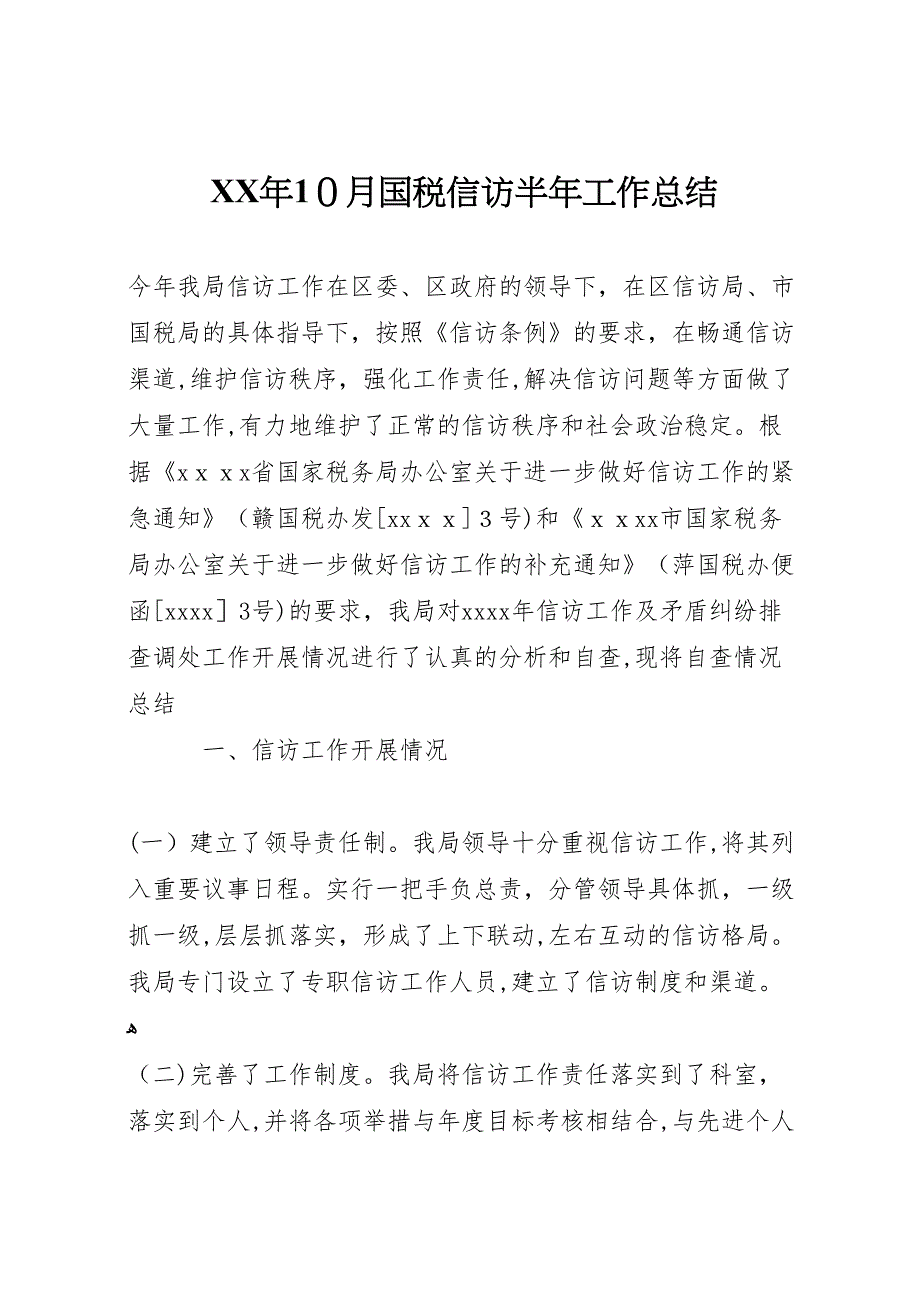 XX年1０月国税信访半年工作总结
今年我局信访工作在区委、区政府的领导下，在区信访局、市
国税局的具体指导下，按照《信访条例》的要求，在畅通信访
渠道,维护信访秩序，强化工作责任,解决信访问题等方面做了
大量工作,有力地维护了正常的信访秩序和社会政治稳定。根
据《xｘｘx省国家税务局办公室关于进一步做好信访工作的紧
急通知》（赣国税办发[xxｘｘ]３号)和《ｘｘxx市国家税务
局办公室关于进一步做好信访工作的补充通知》（萍国税办便
函[xxxx］3号)的要求，我局对xxxx年信访工作及矛盾纠纷排
查调处工作开展情况进行了认真的分析和自查,现将自查情况
总结
一、信访工作开展情况
(一）建立了领导责任制。我局领导十分重视信访工作,将其列
入重要议事日程。实行一把手负总责，分管领导具体抓，一级
抓一级,层层抓落实，形成了上下联动,左右互动的信访格局。
我局专门设立了专职信访工作人员,建立了信访制度和渠道。
ﻫ
（二)完善了工作制度。我局将信访工作责任落实到了科室，
落实到个人,并将各项举措与年度目标考核相结合,与先进个人